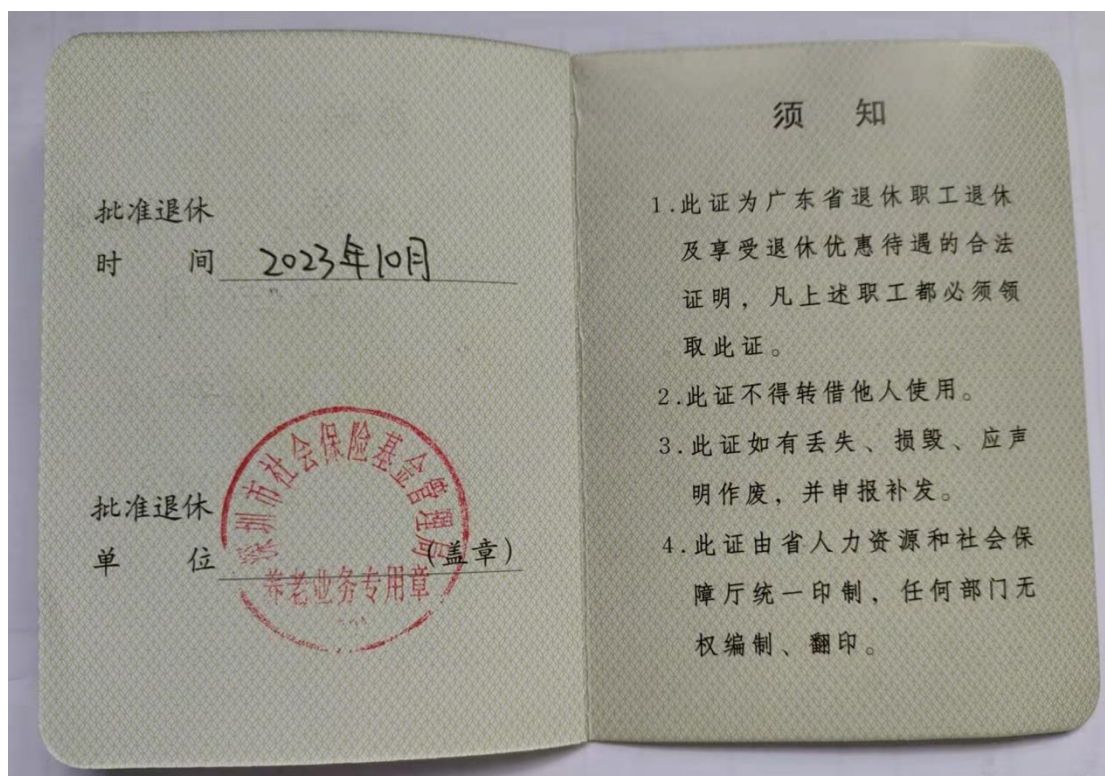 批准退休
时 间 2023年10月
深圳市社会保险基金管理局
养老业务专用章
批准退休
单 位 (盖章)
须 知
1.此证为广东省退休职工退休
及享受退休优惠待遇的合法
证明，凡上述职工都必须领
取此证。
2.此证不得转借他人使用。
3.此证如有丢失、损毁、应声
明作废，并申报补发。
4.此证由省人力资源和社会保
障厅统一印制，任何部门无
权编制、翻印。